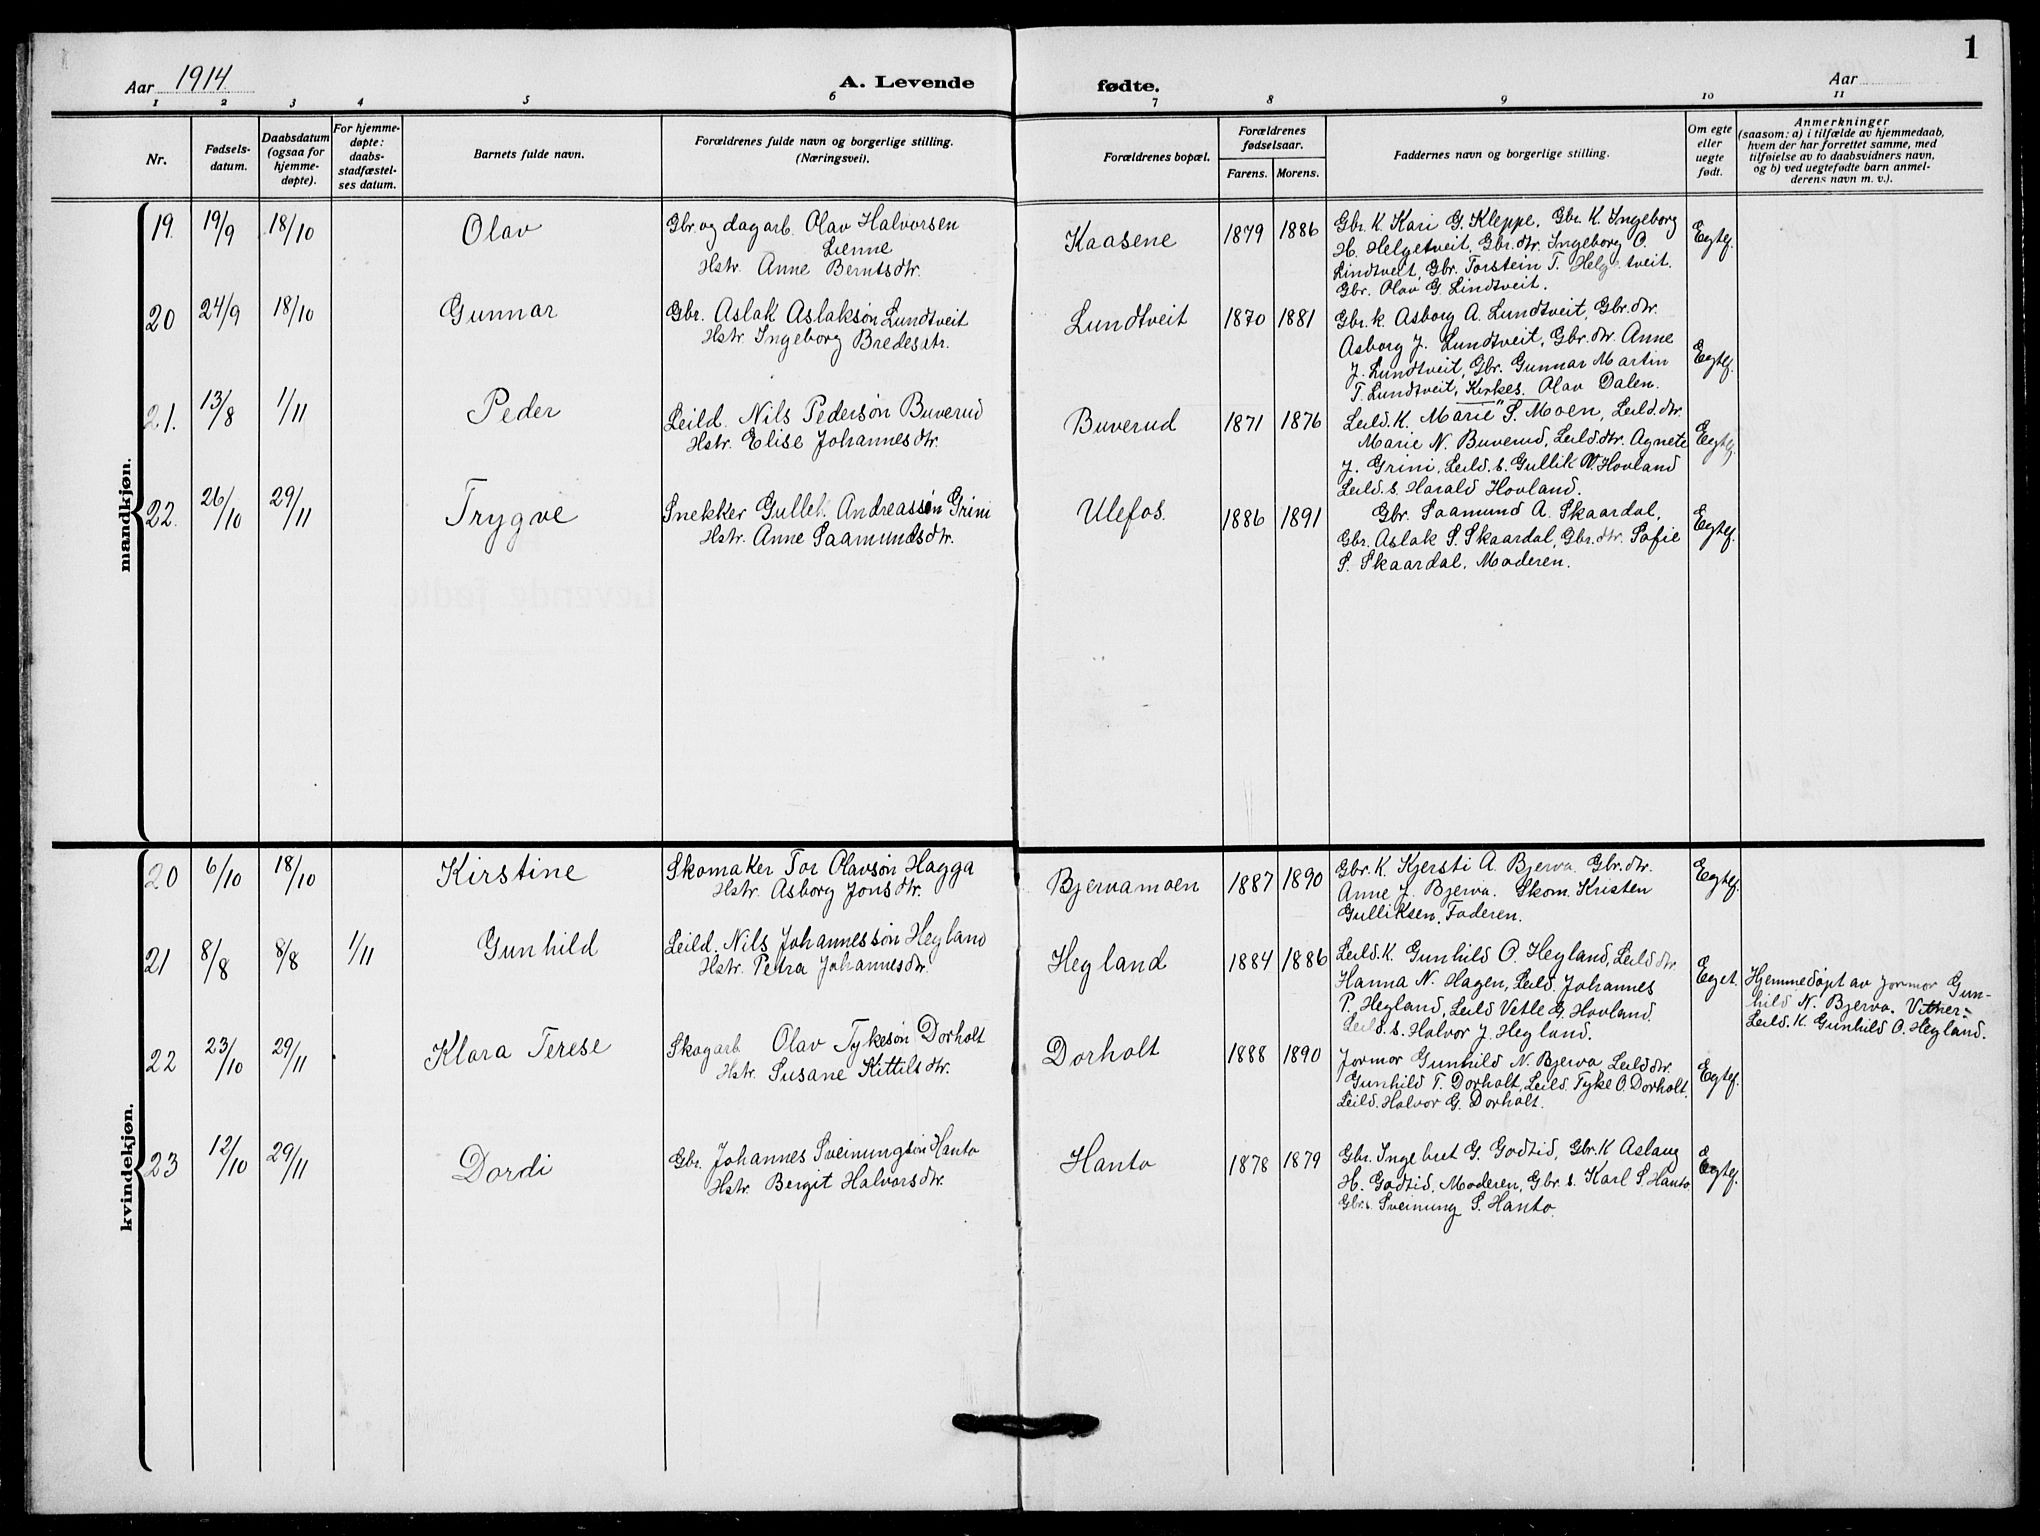 1
Aar 1914. A. Levende fødte. Aar
1 2 3 4 5 6 7 8 9 10 11
Nr.
Fødsels-
datum.
Daabsdatum
(ogsaa for
hjemme-
døpte).
For hjemme-
døpte:
daabs-
stadfæstel-
ses datum.
Barnets fulde navn.
Forældrenes fulde navn og borgerlige stilling.
(Næringsvei).
Forældrenes bopæl.
Forældrenes
fødselsaar.
Farens. Morens.
Faddernes navn og borgerlige stilling.
Om egte
eller
uegte
født.
Anmerkninger
(saasom: a) i tilfælde av hjemmedaab,
hvem der har forrettet samme, med
tilføielse av to daabsvidners navn,
og b) ved uegtefødte barn anmel-
derens navn m. v.).
mandkjøn.
19. 19/9 18/10 Olav
Gbr. og dagarb. Olav Halvorsen
Lienne
Hstr. Anne Berntsdtr.
Kaasene 1879 1886
Gbr. K. Kari G. Kleppe, Gbr. K. Ingeborg
H. Helgetveit, Gbr. dtr. Ingeborg O.
Lindtveit, Gbr. Torstein T. Helgetveit.
Gbr. Olav G. Lindtveit.
Egtef.
20 24/9 18/10 Gunnar
Gbr. Aslak Aslaksøn Lundtveit
Hstr. Ingeborg Bredesdtr.
Lundtveit 1870 1881
Gbr. k. Asborg A. Lundtveit, Gbr. dtr.
Asborg J. Lundtveit, Gbr. dtr. Anne
J. Lundtveit, Gbr. Gunnar Martin
T. Lundtveit, Kirkes. Olav Dalen.
Egtef.
21. 13/8 1/11 Peder
Leild. Nils Pedersøn Buverud
Hstr. Elise Johannesdtr.
Buverud 1871 1876
Leild. K. Marie S. Moen, Leild. dtr.
Marie N. Buverud, Leild. dtr. Agnete
J. Grini, Leild. s. Gullik N. Hovland
Leild. s. Harald Hovland.
Egtef.
22. 26/10 29/11 Trygve
Snekker Gullek Andreassøn Grini
Hstr. Anne Saamundsdtr.
Ulefos. 1886 1891
Gbr. Saamund A. Skaardal,
Gbr. Aslak S. Skaardal, Gbr. dtr. Sofie
S. Skaardal, Moderen.
Egtef.
kvindekjøn.
20 6/10 18/10 Kirstine
Skomaker Tor Olavsøn Hagga
Hstr. Asborg Jonsdtr.
Bjervamoen 1887 1890
Gbr. K. Kjersti A. Bjerva. Gbr. dtr.
Anne J. Bjerva. Skom. Kristen
Gulliksen, Faderen.
Egtef.
21 8/8 8/8 1/11 Gunhild
Leild. Nils Johannessøn Hegland
Hstr. Petra Johannesdtr.
Hegland 1884 1886
Leild. K. Gunhild O. Hegland, Leild dtr.
Hanna N. Hagen, Leild. Johannes
P. Hegland, Leild Vetle G. Hovland.
Leild. s. Halvor J. Hegland.
Eget.
Hjemmedøpt av Jormor Gun-
hild N. Bjerva. Vitner:
Leild. K. Gunhild O. Hegland.
22 23/10 29/11 Klara Terese
Skogarb. Olav Tykesøn Dorholt
Hstr. Susane Kittilsdtr.
Dorholt 1888 1890
Jormor Gunhild N. Bjerva Leild dtr.
Gunhild T. Dorholt, Leild. Tyke O Dorholt.
Leild. Halvor G. Dorholt.
Egtef.
23 12/10 29/11 Dordi
Gbr. Johannes Sveinungsøn Hanto
Hstr. Bergit Halvorsdtr.
Hanto 1878 1879
Gbr. Ingebret G. Godtid, Gbr. K Aslaug
H. Godtid, Moderen, Gbr s. Karl S. Hanto
Gbr. s. Sveinung S. Hanto.
Egtef.